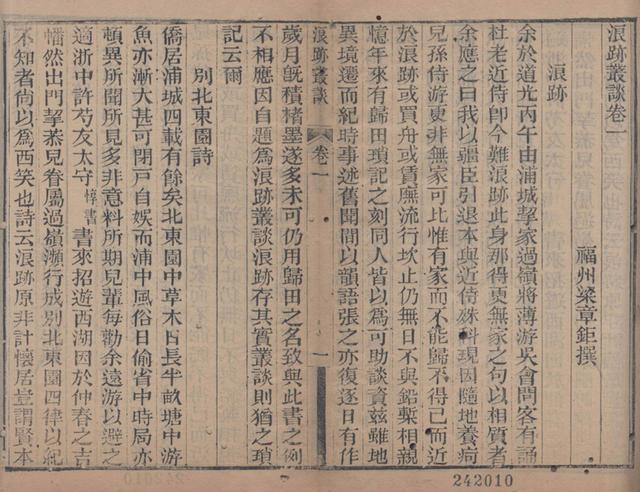 浪跡叢談卷一
福州梁章鉅撰
浪跡
余於道光丙午由浦城挈家過嶺將薄游吳會問客有誦
杜老近侍卽今難浪跡此身那得更無家之句以相質者
余應之曰我以疆臣引退本與近侍殊科現因隨地養疴
兒孫侍游更非無家可比惟有家而不能歸不得已而近
於浪跡或買舟或賃廡流行坎止仍無日不與鉛槧相親
憶年來有歸田瑣記之刻同人皆以爲可助談資茲雖地
異境遷而紀時事述舊聞間以韻語張之亦復逐日有作
浪跡叢談
卷一
一
歲月旣積楮墨遂多未可仍用歸田之名致與此書之例
不相應因自題爲浪跡叢談浪跡存其實叢談則猶之瑣
記云爾
別北東園詩
僑居浦城四載有餘矣北東園中草木日長半畝塘中游
魚亦漸大甚可閉戶自娛而浦中風俗日偷省中時局亦
頓異所聞所見多非意料所期兒輩每勸余遠游以避之
適浙中許芍友太守惇書書來招遊西湖因於仲春之吉
幡然出門挈恭兒眷屬過嶺瀕行成別北東園四律以紀
不知者尙以爲西笑也詩云浪跡原非計懷居豈謂賢本
242010